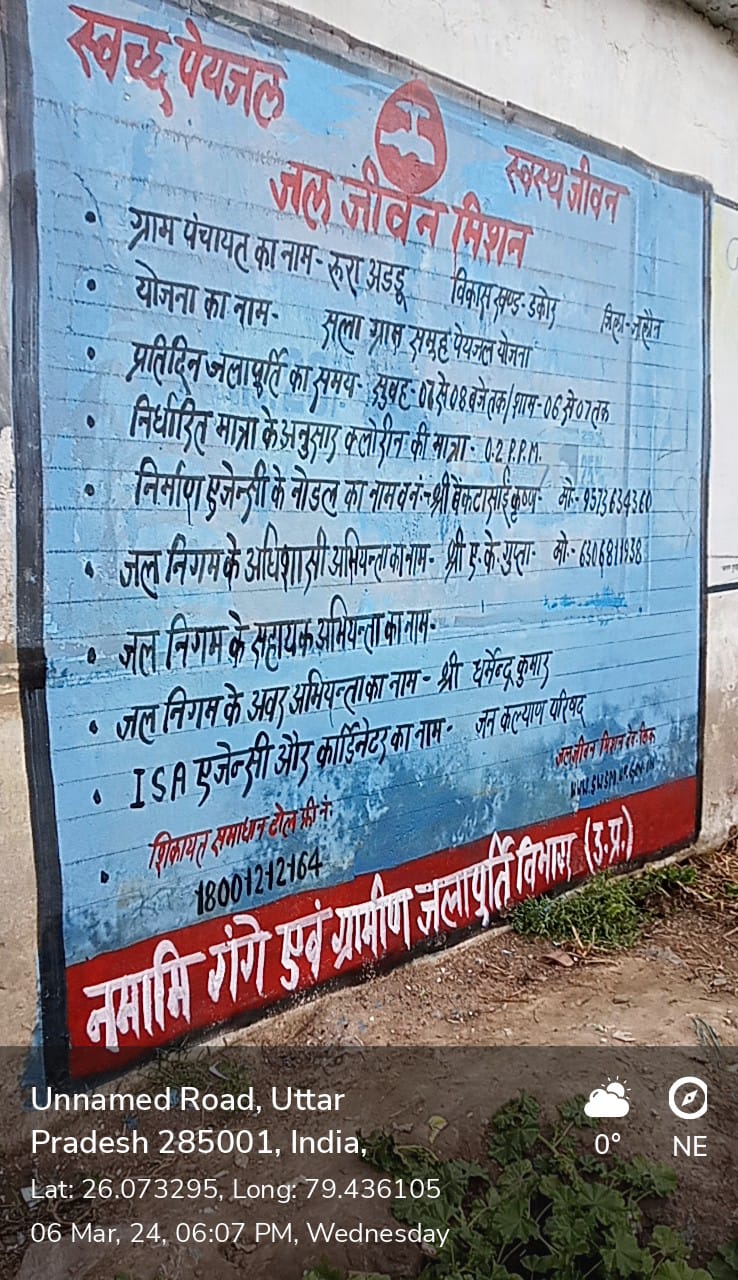 स्वच्छ पेयजल
स्वस्थ जीवन
जल जीवन मिशन
• ग्राम पंचायत का नाम- रूरा अडडू विकास खण्ड- डकोर जिला- जालौन
• योजना का नाम- सला ग्राम समूह पेयजल योजना
• प्रतिदिन जलापूर्ति का समय- सुबह- 07 से 08 बजे तक/शाम- 06 से 07 तक
• निर्धारित मात्रा के अनुसार क्लोरीन की मात्रा- 0.2 P.P.M.
• निर्माण एजेन्सी के नोडल का नाम व नं:- श्री बेंकटासाई कृष्ण- मो:- 9573634360
• जल निगम के अधिशासी अभियन्ता का नाम- श्री ए.के.गुप्ता- मो:- 6306811938
• जल निगम के सहायक अभियन्ता का नाम-
• जल निगम के अवर अभियन्ता का नाम- श्री धर्मेन्द्र कुमार
• ISA एजेन्सी और कार्डिनेटर का नाम- जन कल्याण परिषद
जलजीवन मिशन
• शिकायत समाधान टोल फ्री नं:
18001212164
नमामि गंगे एवं ग्रामीण जलापूर्ति विभाग (उ.प्र.)
Unnamed Road, Uttar
Pradesh 285001, India,
Lat: 26.073295, Long: 79.436105
06 Mar, 24, 06:07 PM, Wednesday
0°
NE